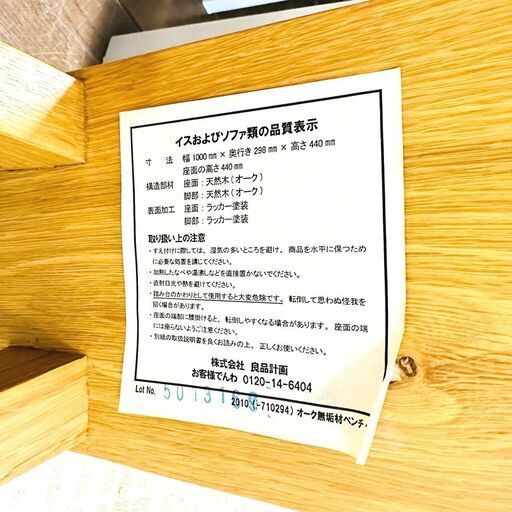 イスおよびソファ類の品質表示
寸　法　幅1000㎜ × 奥行き298㎜ × 高さ440㎜
座面の高さ440㎜
構造部材　座面：天然木（オーク）
脚部：天然木（オーク）
表面加工　座面：ラッカー塗装
脚部：ラッカー塗装
取り扱い上の注意
・すえ付けに際しては、湿気の多いところを避け、商品を水平に保つため
に必要な処置を講じてください。
・加熱したなべや湯沸しなどを直接置かないでください。
・直射日光や熱を避けてください。
・踏み台のかわりとして使用すると大変危険です。転倒して思わぬ怪我を
招く場合があります。
・座面の端部に腰掛けると、転倒しやすくなる場合があります。座面の端
には座らないようご注意ください。
・別紙の取扱説明書を良くお読みの上、正しくお使いください。
株式会社 良品計画
お客様でんわ 0120-14-6404
Lot No.
2010（-710294）オーク無垢材ベンチ